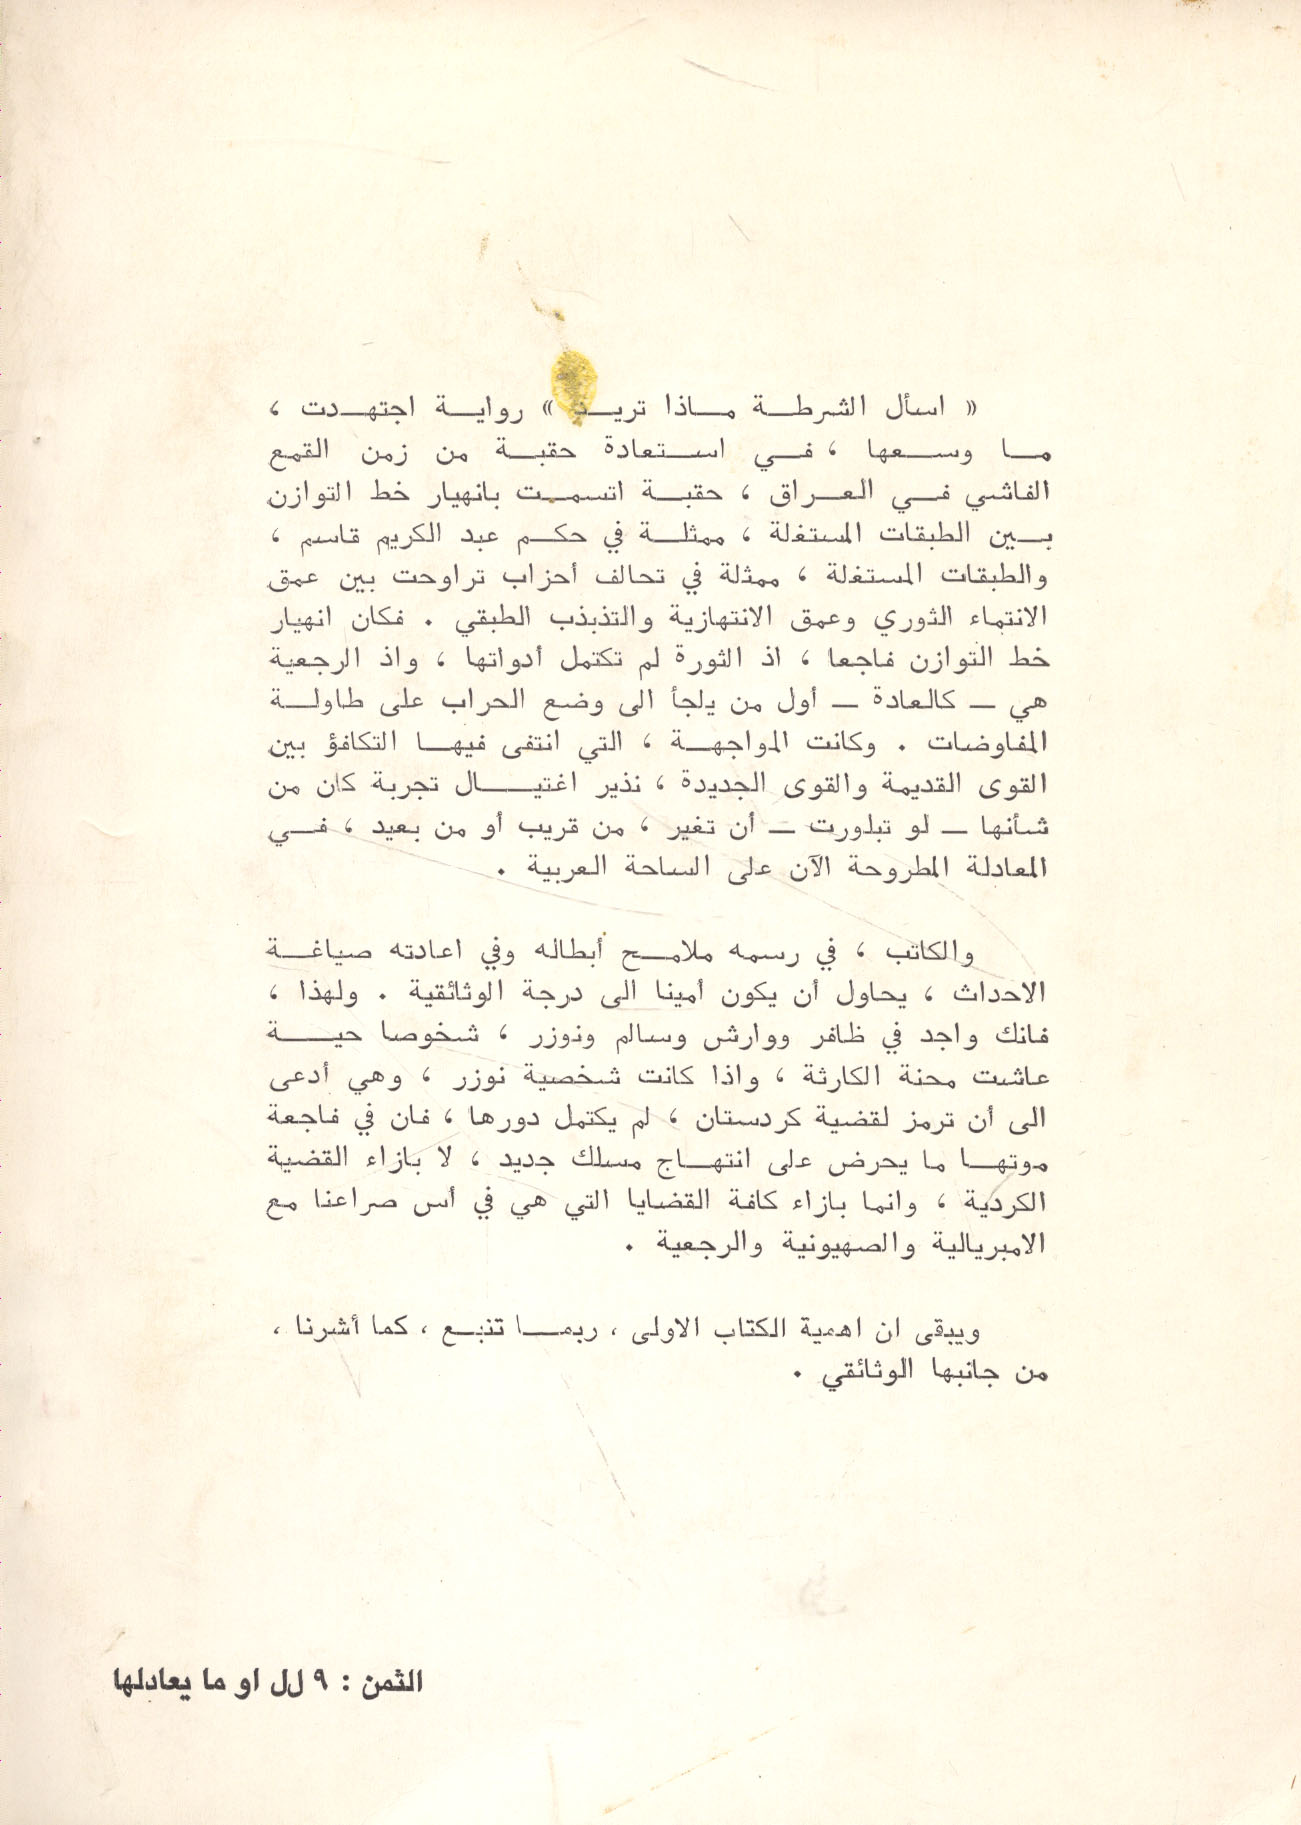 « اسأل الشرطة ماذا تريد » رواية اجتهدت ،
ما وسعها ، في استعادة حقبة من زمن القمع
الفاشي في العراق ، حقبة اتسمت بانهيار خط التوازن
بين الطبقات المستغلة ، ممثلة في حكم عبد الكريم قاسم ،
والطبقات المستغلة ، ممثلة في تحالف أحزاب تراوحت بين عمق
الانتماء الثوري وعمق الانتهازية والتذبذب الطبقي . فكان انهيار
خط التوازن فاجعا ، اذ الثورة لم تكتمل أدواتها ، واذ الرجعية
هي — كالعادة — أول من يلجأ الى وضع الحراب على طاولة
المفاوضات . وكانت المواجهة ، التي انتفى فيها التكافؤ بين
القوى القديمة والقوى الجديدة ، نذير اغتيال تجربة كان من
شأنها — لو تبلورت — أن تغير ، من قريب أو من بعيد ، في
المعادلة المطروحة الآن على الساحة العربية .
والكاتب ، في رسمه ملامح أبطاله وفي اعادته صياغة
الاحداث ، يحاول أن يكون أمينا الى درجة الوثائقية . ولهذا ،
فانك واجد في ظافر ووارش وسالم ونوزر ، شخوصا حية
عاشت محنة الكارثة ، واذا كانت شخصية نوزر ، وهي أدعى
الى أن ترمز لقضية كردستان ، لم يكتمل دورها ، فان في فاجعة
موتها ما يحرض على انتهاج مسلك جديد ، لا بازاء القضية
الكردية ، وانما بازاء كافة القضايا التي هي في أس صراعنا مع
الامبريالية والصهيونية والرجعية .
ويبقى ان اهمية الكتاب الاولى ، ربما تنبع ، كما أشرنا ،
من جانبها الوثائقي .
الثمن : ٩ ل.ل او ما يعادلها